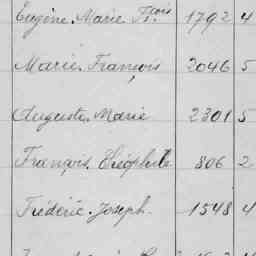 Eugène. Marie Fçois 1792 4
Marie. François 2046 5
Auguste. Marie 2301 5
François. Théophile 806 2
Fréderic. Joseph. 1548 4